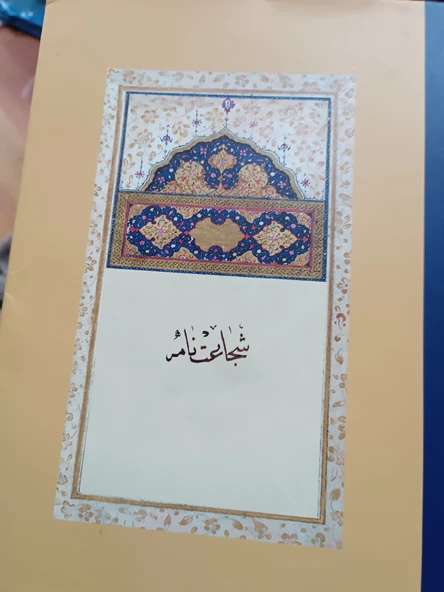 شجاعت نامه